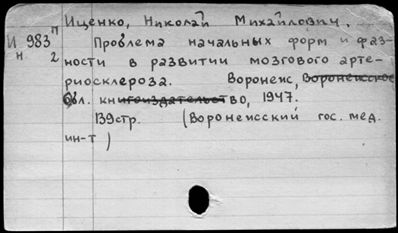 Иценко, Николай Михайлович.
И 983 п
н 2
Проблема начальных форм и фаз-
ности в развитии мозгового арте-
риосклероза. Воронеж, Воронежское
Обл. книгоиздательство, 1947.
139стр. (Воронежский гос. мед.
ин-т)